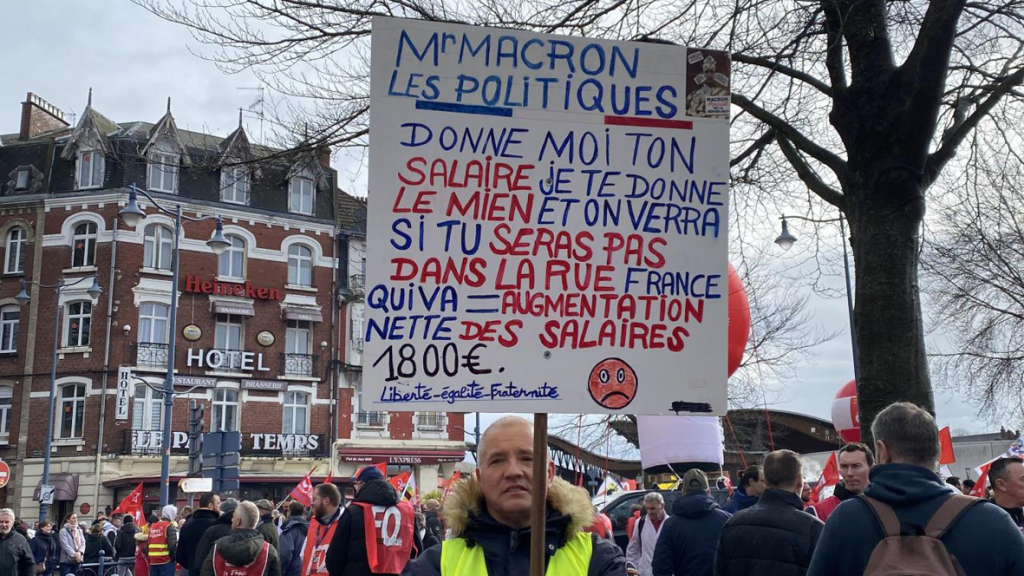 Mr MACRON
LES POLITIQUES
MACRON
DONNE MOI TON
SALAIRE JE TE DONNE
LE MIEN ET ON VERRA
SI TU SERAS PAS
DANS LA RUE FRANCE
QUI VA = AUGMENTATION
NETTE DES SALAIRES
1800€.
Liberté-égalité-Fraternité
Heineken
HOTEL
RESTAURANT BRASSERIE
HOTEL
TEMPS
L'EXPRESS
FO